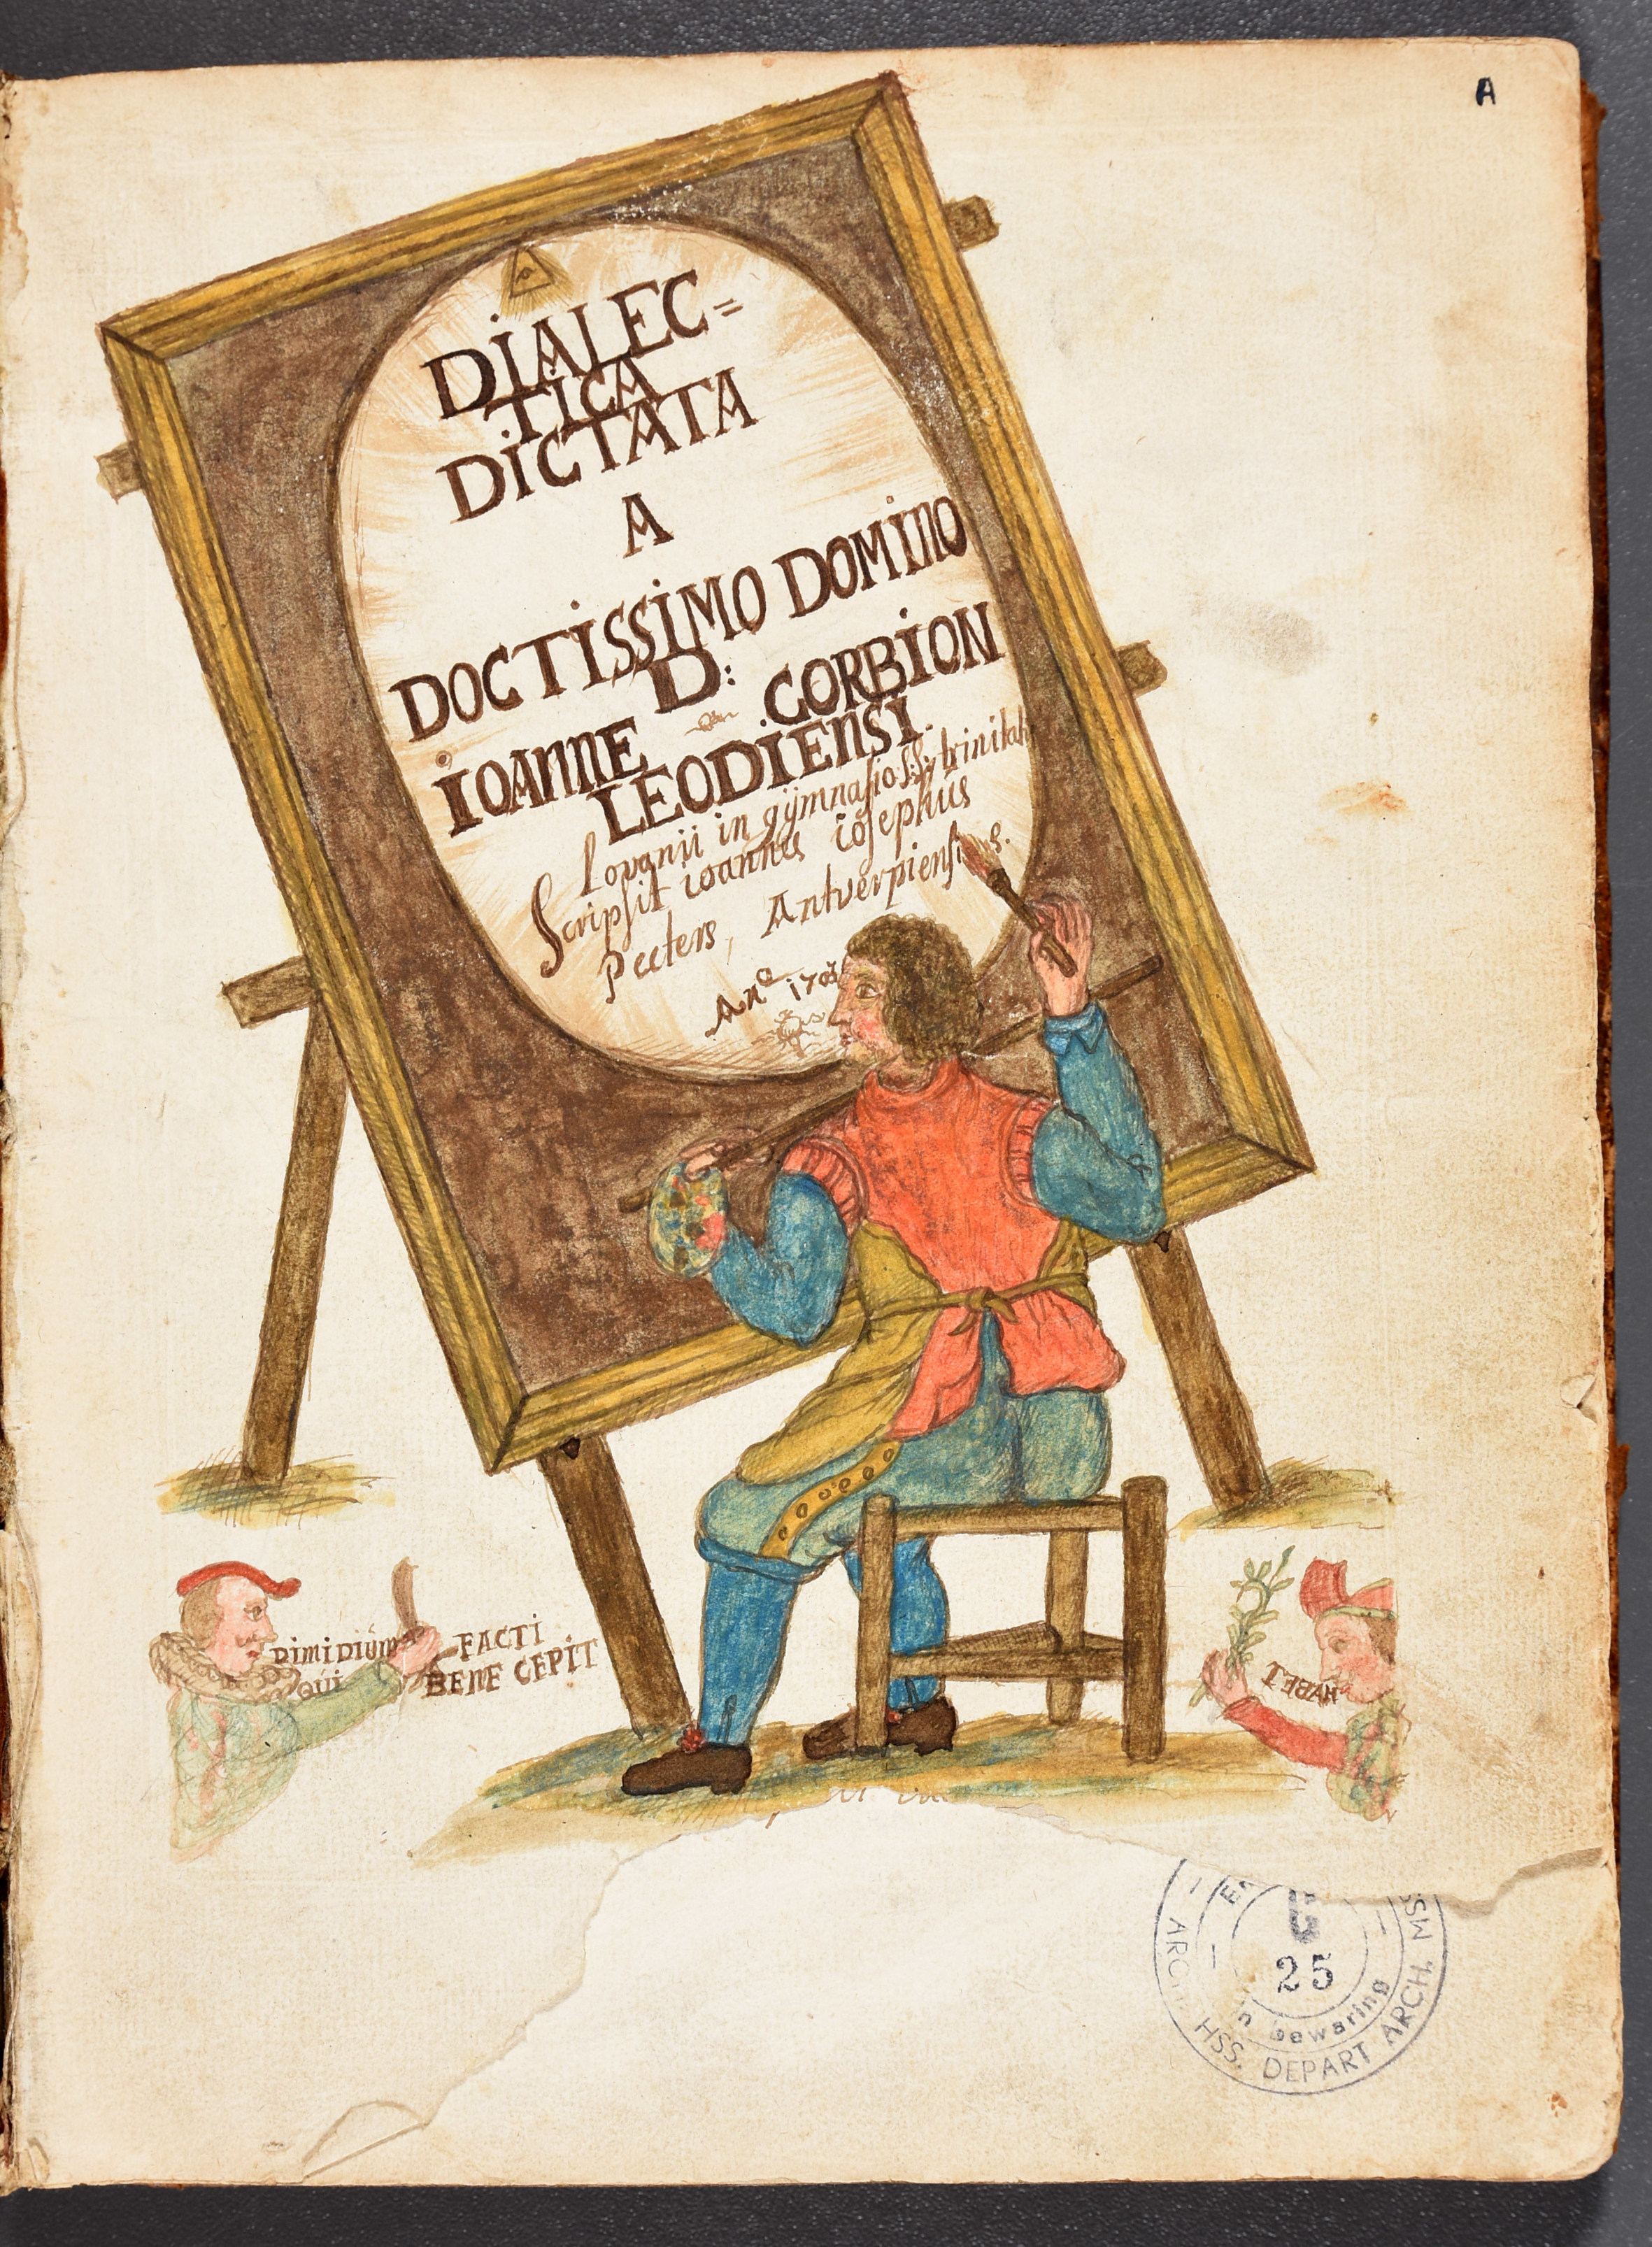 A
DiALEC=
TICA
DiCTATA
A
DOCTiSSiMO DOMINO
D:
iOANNE CORBiON
LEODiENSi.
lovanii in gÿmnasio SS: trinitatis
Scripsit ioannes iosephus
Peeters, Antverpiensis.
Anº
DiMiDiúm FACTI
QUi BENE CEPiT
HABET
25
in bewaring
HSS. DEPART ARCH. MSS